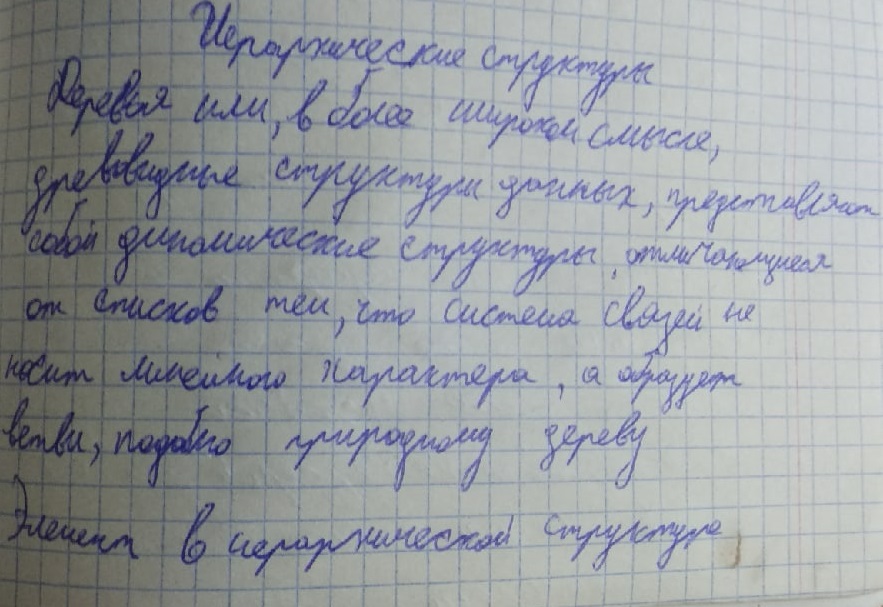 Иерархические структуры
Деревья или, в более широком смысле,
древовидные структуры данных, представляют
собой динамические структуры, отличающиеся
от списков тем, что система связей не
носит линейного характера, а образует
ветви, подобно природному дереву
Элемент в иерархической структуре